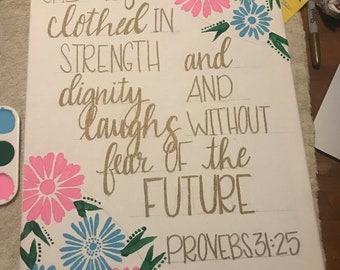 clothed IN
STRENGTH and
dignity AND
laughs WITHOUT
fear OF the
FUTURE
PROVERBS 31:25